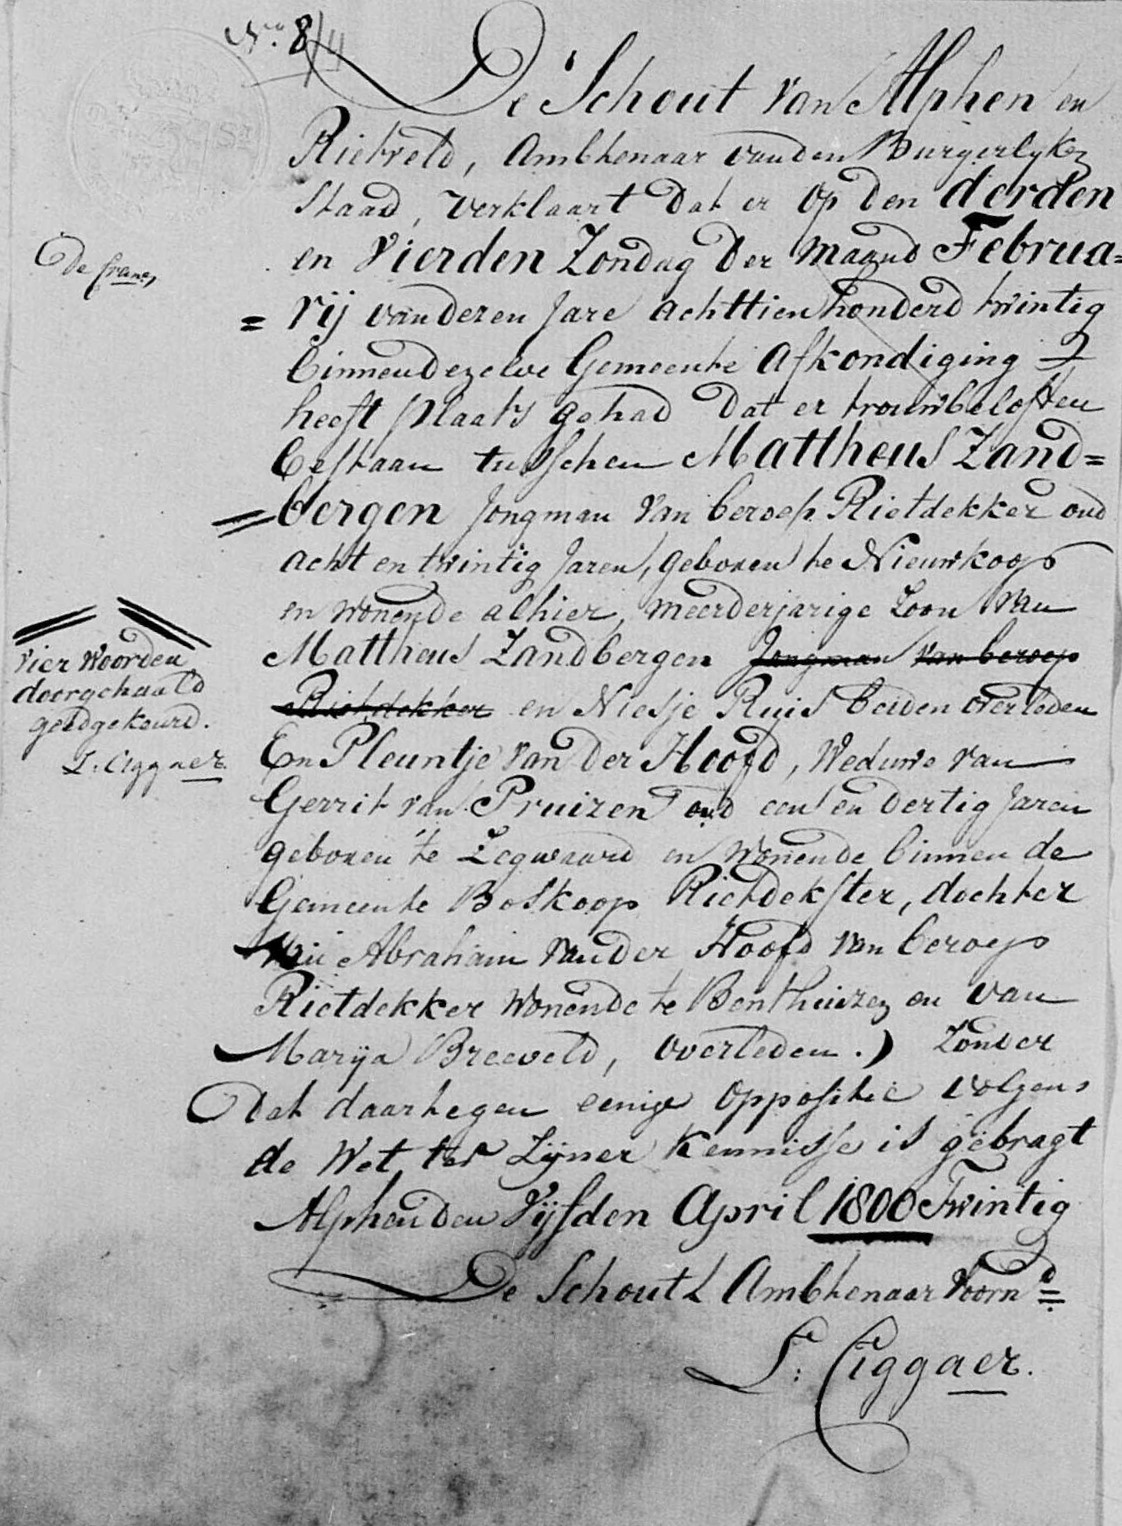 No. 8
De Schout van Alphen en
Rietveld, Ambtenaar van den Burgerlyken
Staad, verklaart dat er op den derden
en Vierden Zondag der maand Februa=
= rij van dezen Jare achttien honderd twintig
binnen dezelve Gemeente afkondiging
heeft plaats gehad dat er trouwbeloften
bestaan tusschen Mattheus Zand=
= bergen Jongman van beroep Rietdekker oud
acht en twintig Jaren, geboren te Nieuwkoop
en wonende alhier, meerderjarige Zoon van
Mattheus Zandbergen Jongman van beroep
Rietdekker en Niesje Ruis beiden overleden
En Pleuntje van der Hoofd, Weduwe van
Gerrit van Pruizen oud een en dertig Jaren
geboren te Zegwaard en wonende binnen de
Gemeente Boskoop Rietdekster, dochter
van Abraham van der Hoofd van beroep
Rietdekker wonende te Benthuizen en van
Marija Breeveld, overleden.) Zonder
dat daartegen eenige oppositie volgens
de Wet, ter Zijner kennisse is gebragt
Alphen den Vijfden April 1800 Twintig
De Schout & Ambtenaar voornd
L: Ciggaer.
vier woorden
doorgehaald
goedgekeurd.
L: Ciggaer